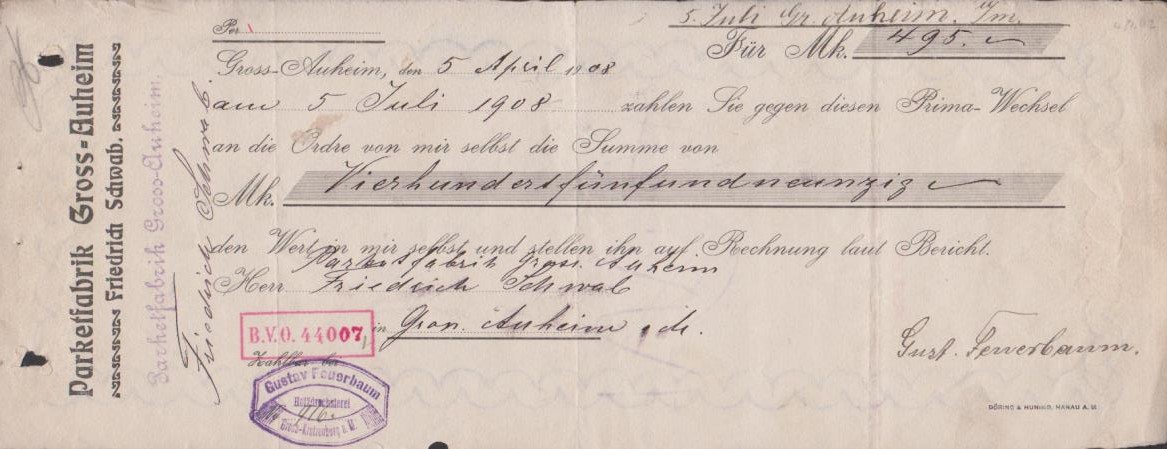 Parketfabrik Gross-Auheim
Friedrich Schwab.
Parketfabrik Gross-Auheim.
Friedrich Schwab.
Per
5. Juli Gr. Auheim. I/m.
Für Mk. 495.
Gross-Auheim, den 5 April 1908
am 5 Juli 1908 zahlen Sie gegen diesen Prima-Wechsel
an die Ordre von mir selbst die Summe von
Mk. Vierhundertfünfundneunzig
den Wert in mir selbst und stellen ihn auf Rechnung laut Bericht.
Parketfabrik Gross Auheim
Herr Friedrich Schwab
B.V.O. 44007
in Gross. Auheim a. M.
Zahlbar bei
Gust. Feuerbaum.
Gustav Feuerbaum
Holzdrechslerei
Gross-Krotzenburg a. M.
DÖRING & HUNING, HANAU A. M.